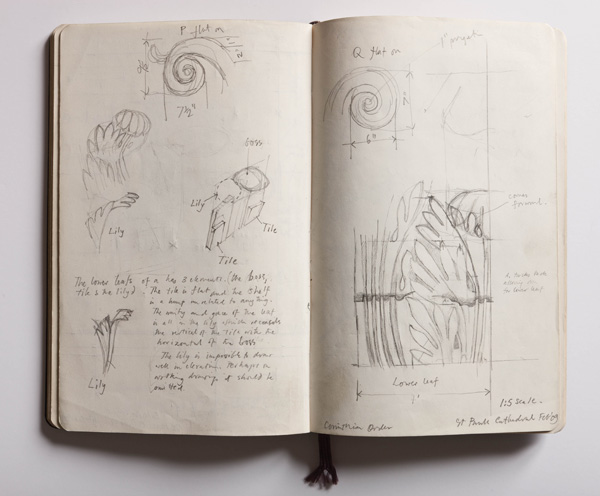 P flat on
7½"
boss
Lily
Lily
Tile
Tile
The lower leafs of a has 3 elements. (the boss,
tile & the lily). The tile is flat and the
is a hump un related to anything.
The unity and grace of the leaf
is all in the lily which
the vertical of the tile with the
horizontal of the boss
The lily is impossible to draw
well in elevation. Perhaps in
working drawings it should be
omitted
Lily
Q flat on
6"
1" project
comes
forward.
Lower leaf
1:5 scale.
Corinthian Order
St. Pauls Cathedral Feb 09